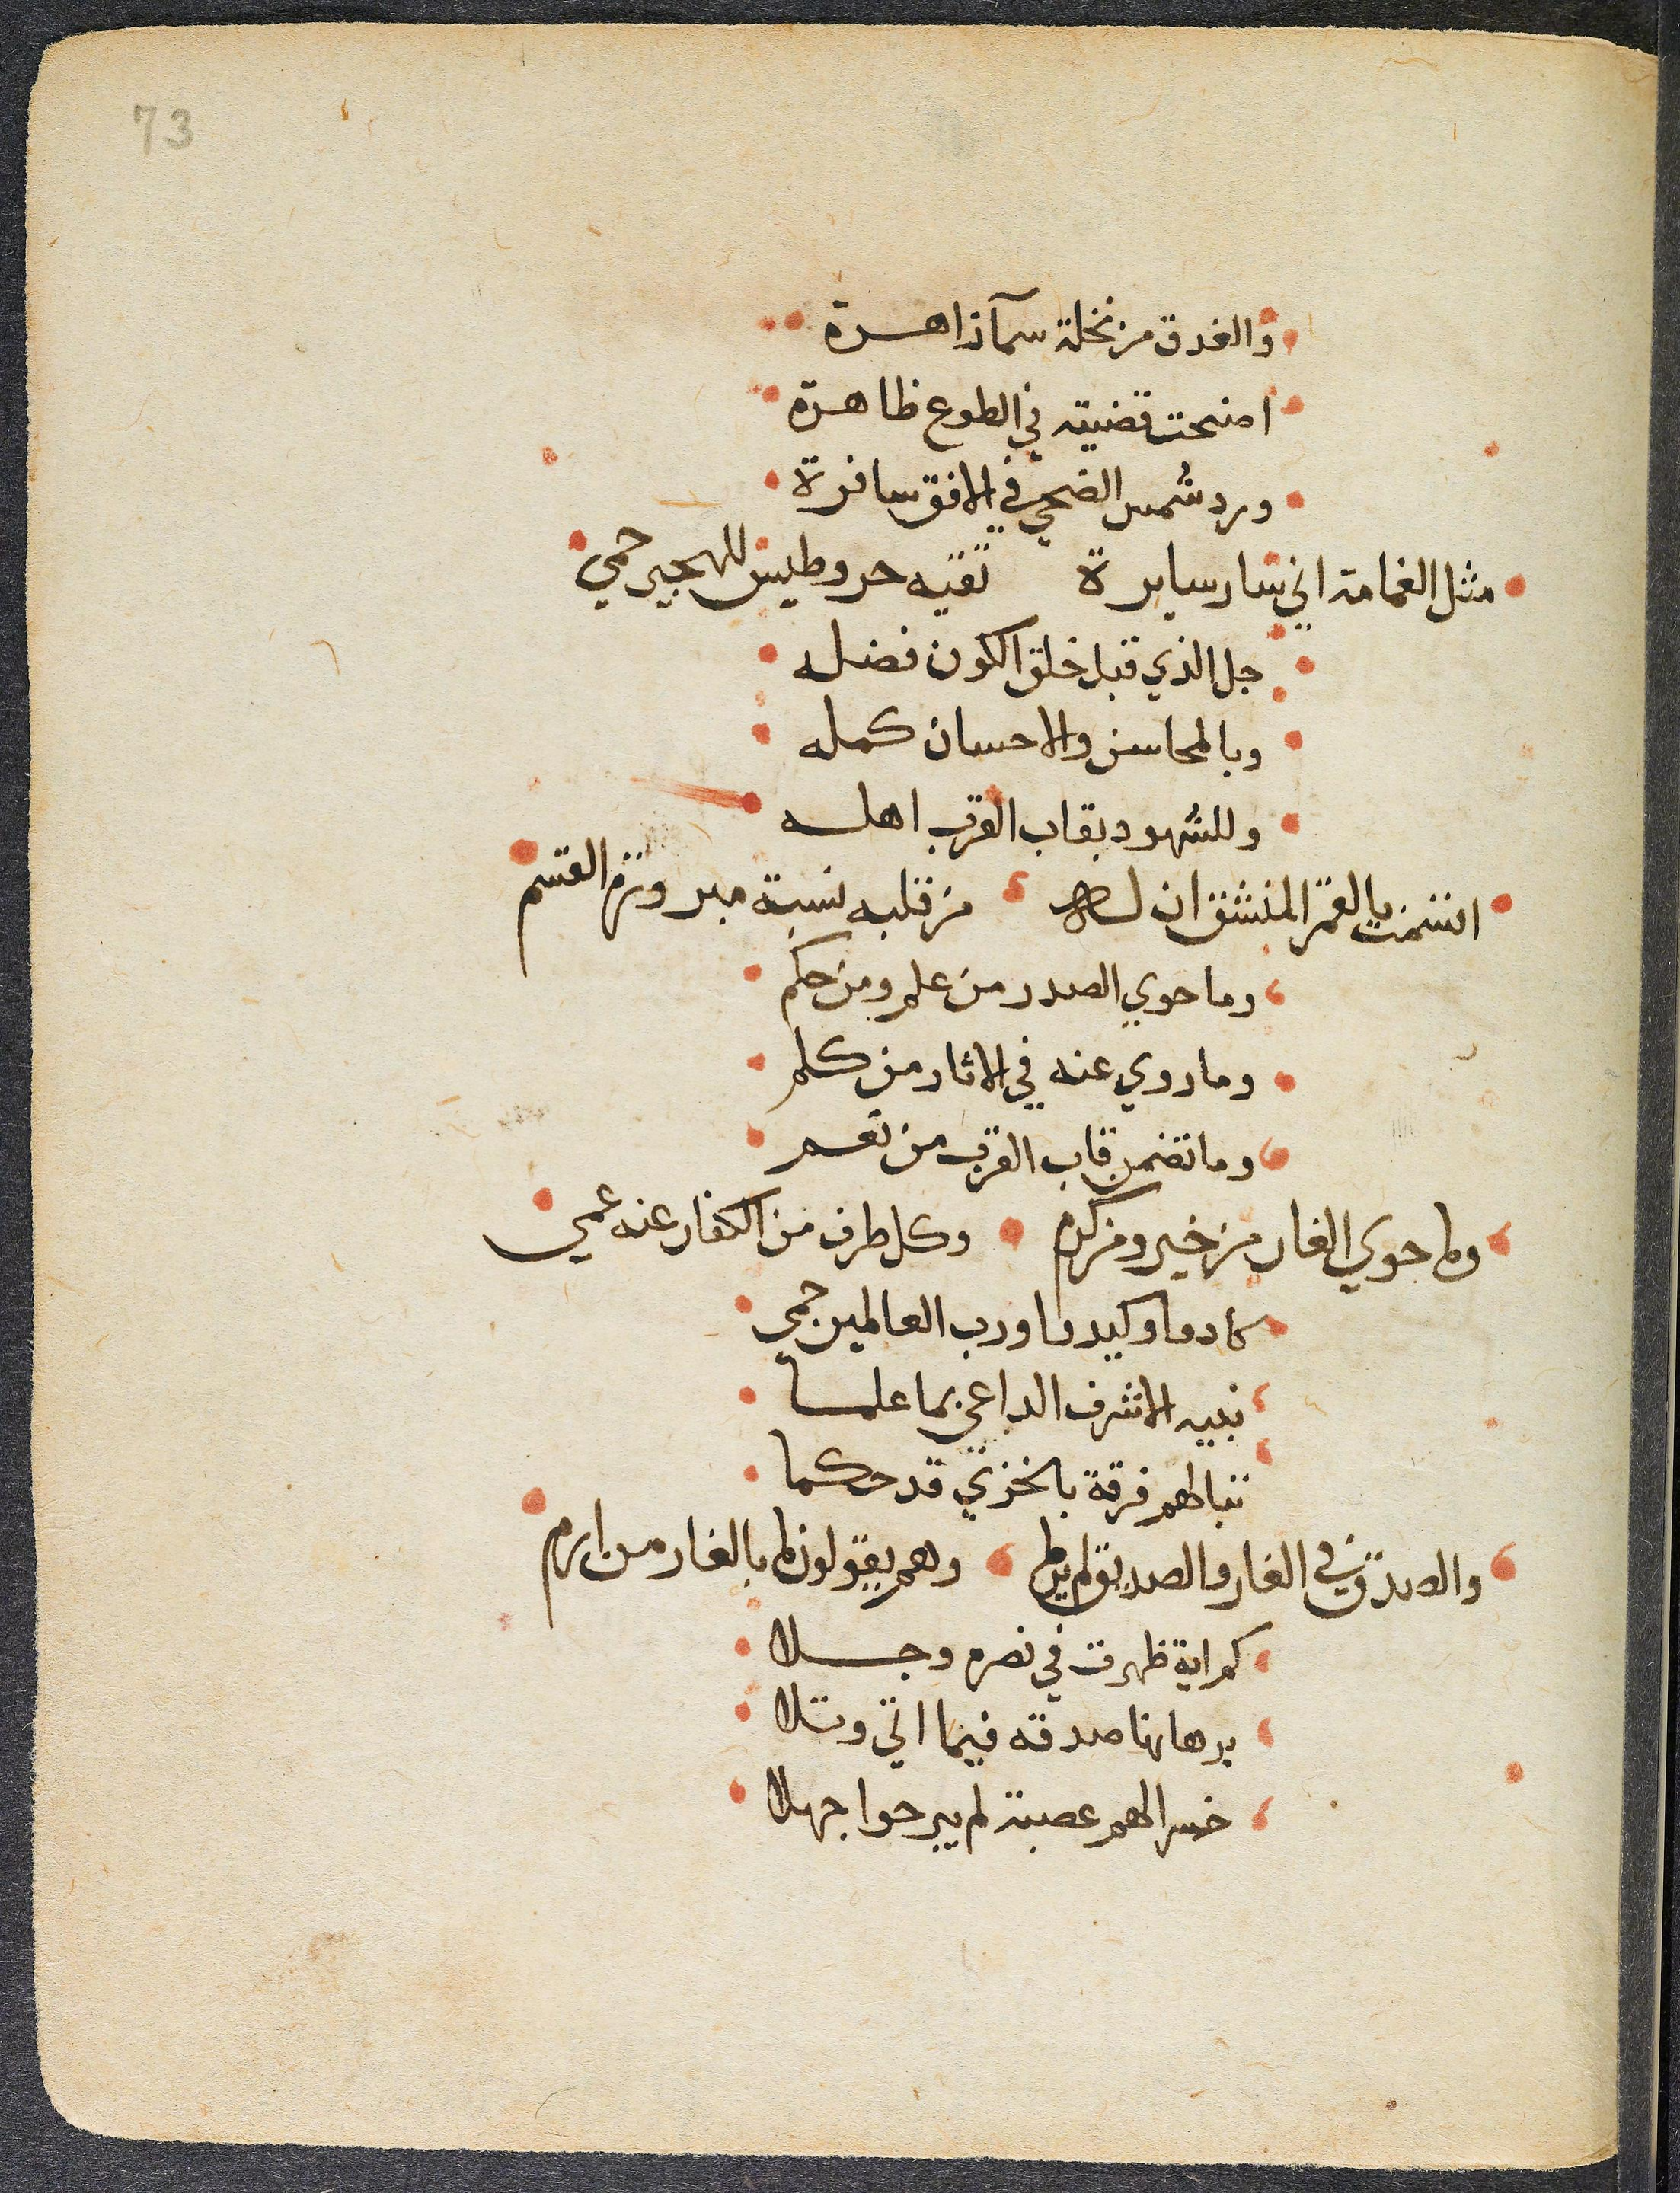 73
والغدق من نخلة سمآ زاهرة
اضحت قضيته في الطوع ظاهرة
ورد شمس الضحي في الافق سافرة
مثل الغمامة اني سار سايرة تقيه حر وطيس للهجير حمي
جل الذي قبل خلق الكون فضله
وبالمحاسن والاحسان كمله
وللشهود بقاب القرب اهله
اقسمت بالقمر المنشق ان له من قلبه نسبة مبرورة القسم
وما حوي الصدر من علم ومن حكم
وما روي عنه في الاثار من كلم
وما تضمن قاب القرب من نعم
وما حوي الغار من خير ومن كرم وكل طرف من الكفار عنه عمي
كادوا وكيدوا ورب العالمين حمي
نبيه الاشرف الداعي بما علما
تبا لهم فرقة بالخزي قد حكما
والصدق في الغار والصديق لم يرما وهم يقولون ما بالغار من ارم
كم اية ظهرت في نصره وجلا
برهانها صدقه فيما اتي وتلا
خسرا لهم عصبة لم يبرحوا جهلا